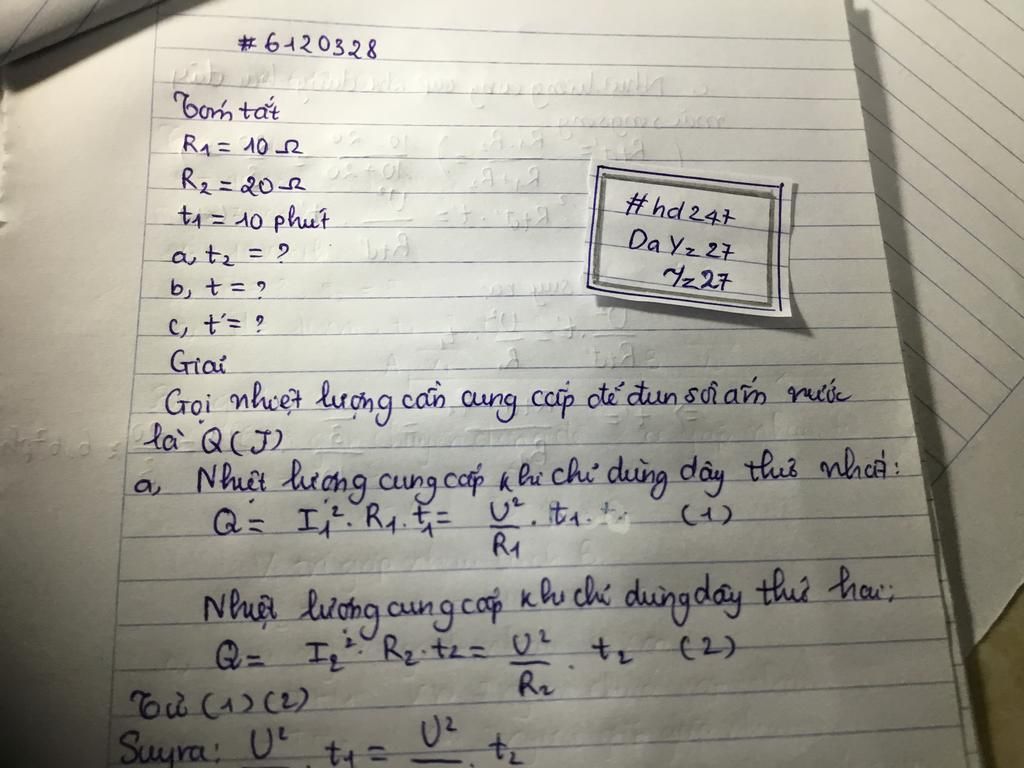 #6120328
Tóm tắt
R1 = 10 Ω
R2 = 20 Ω
t1 = 10 phút
a, t2 = ?
b, t = ?
c, t' = ?
Giải
Gọi nhiệt lượng cần cung cấp để đun sôi ấm nước
là Q(J)
a, Nhiệt lượng cung cấp khi chỉ dùng dây thứ nhất:
Q = I1². R1. t1 = U²/R1 . t1. (1)
Nhiệt lượng cung cấp khi chỉ dùng dây thứ hai:
Q = I2². R2. t2 = U²/R2 . t2 (2)
Từ (1) (2)
Suy ra: U² t1 = U² t2
#hd247